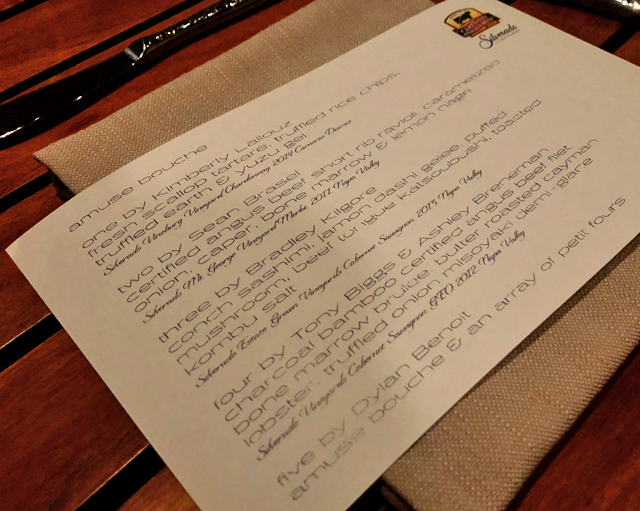 Silverado
amuse bouche
one by Kimberly Lallouz
fresh scallop tartare, truffled rice chips,
truffled earth & yuzu gel
Silverado Vineburg Vineyard Chardonnay 2014 Carneros
two by Sean Brasel
certified angus beef short rib ravioli, caramelized
onion, caper, bone marrow & lemon nage
Silverado Mt. George Vineyard Merlot 2011 Napa Valley
three by Bradley Kilgore
conch sashimi, jamon dashi gelee, puffed
mushroom, beef tongue katsoubushi, toasted
kombu salt
Silverado Estate Grown Vineyards Cabernet Sauvignon, 2013 Napa Valley
four by Tony Biggs & Ashley Breneman
charcoal bamboo certified angus beef filet
bone marrow brulde, butter roasted cayman
lobster, truffled onion misoyaki demi-glare
Silverado Vineyards Cabernet Sauvignon GEO 2012 Napa Valley
five by Dylan Benoit
amuse bouche & an array of petit fours